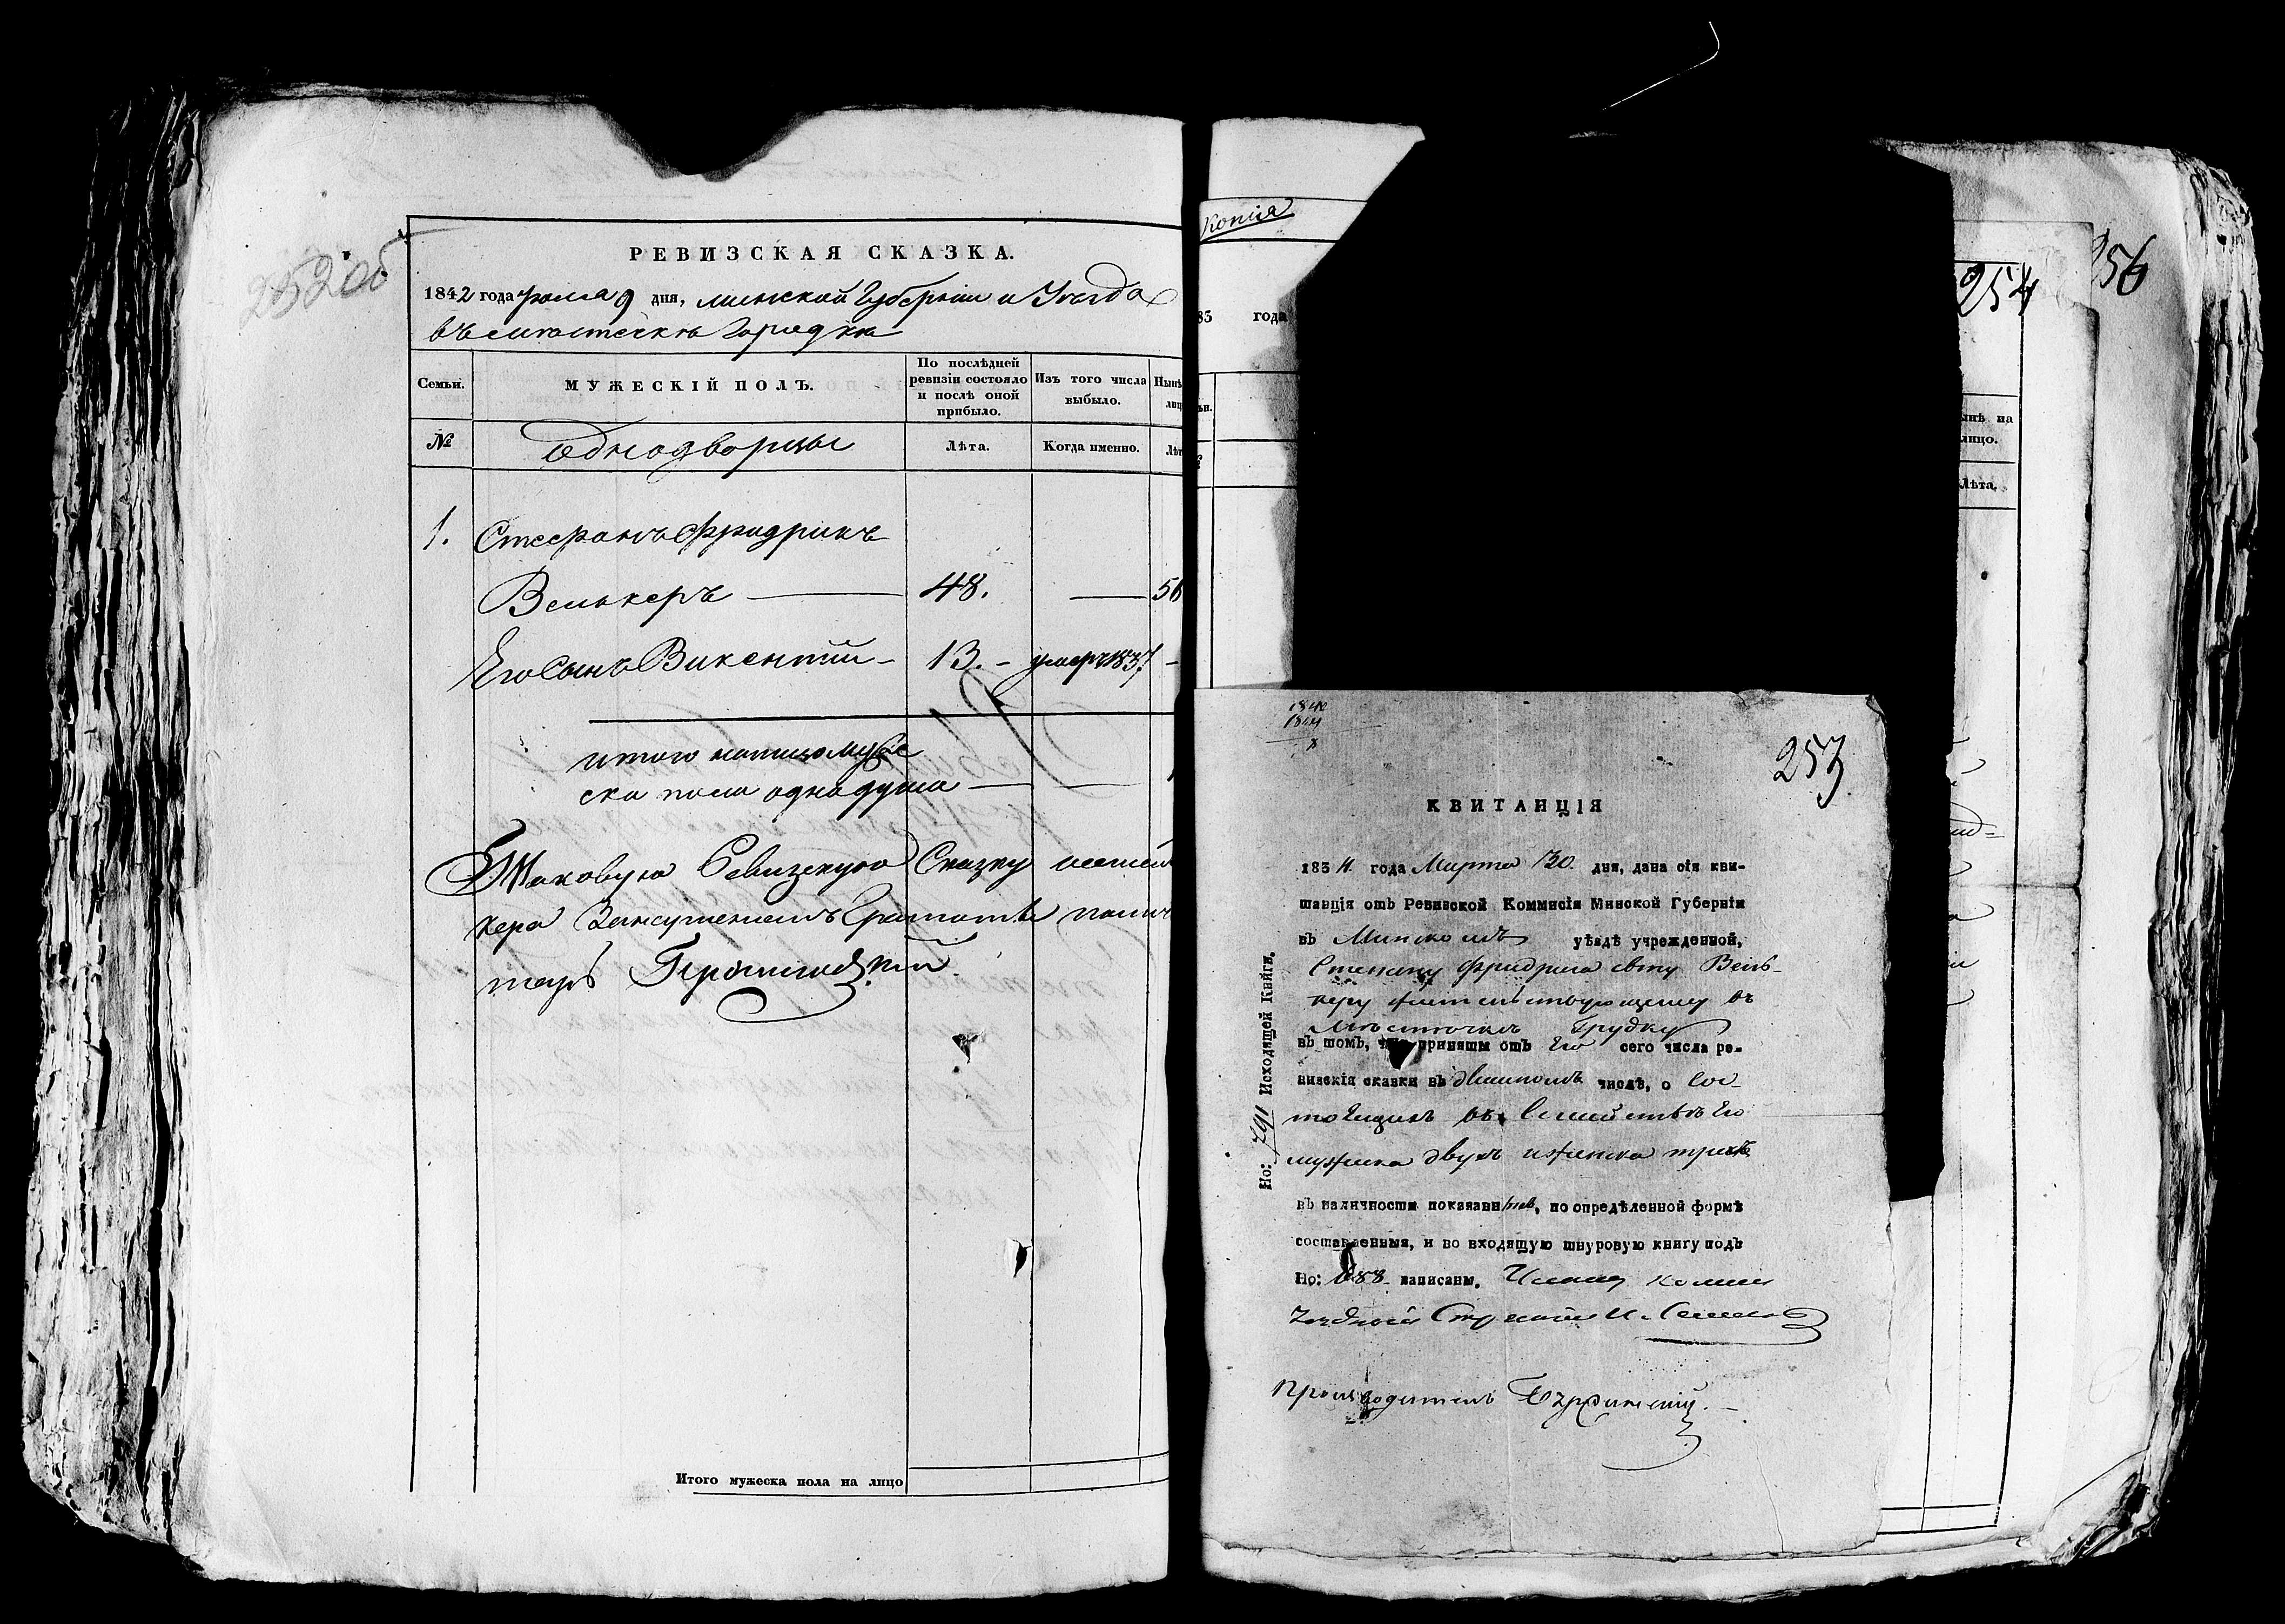 253об
РЕВИЗСКАЯ СКАЗКА.
1842 года дня, Минской Губерніи и Уѣзда
въ мѣстечкѣ Городкѣ
Семьи. МУЖЕСКІЙ ПОЛЪ. По послѣдней ревизіи состояло и послѣ оной прибыло. Изъ того числа выбыло. Нынѣ лиц
№ Однодворцы Лѣта. Когда именно. Лѣт
1. Стефанъ Фридрихъ
Велькеръ — 48. — 56
Его Сынъ Викентій - 13. - умеръ 1837 -
итого налицо муже
ска пола одна душа — —
Таковую Ревизскую Сказку
кера
Итого мужеска пола на лицо
Копія
83 года
ьи.
№
256
254
ынѣ на лицо.
Лѣта.
1842
1834
8
253
КВИТАНЦІЯ
1834. года Марта 30. дня, дана сія кви-
танція отъ Ревизской Коммисіи Минской Губерніи
въ Минскомъ уѣздѣ учрежденной,
Фридриха сыну Вель-
керу жительствующему въ
Мѣстечкѣ Грудку
въ томъ, что приняты отъ Его сего числа ре-
визскія сказки въ двойномъ числѣ, о Сос-
тоящихъ въ Семействѣ Его
мужеска двухъ и женска трехъ
въ наличности показанныхъ, по опредѣленной формѣ
составленныя, и во входящую шнуровую книгу подъ
Но: 688 записаны. Членъ
Уѣздный
Производитель
Но: 791 Исходящей Книги.